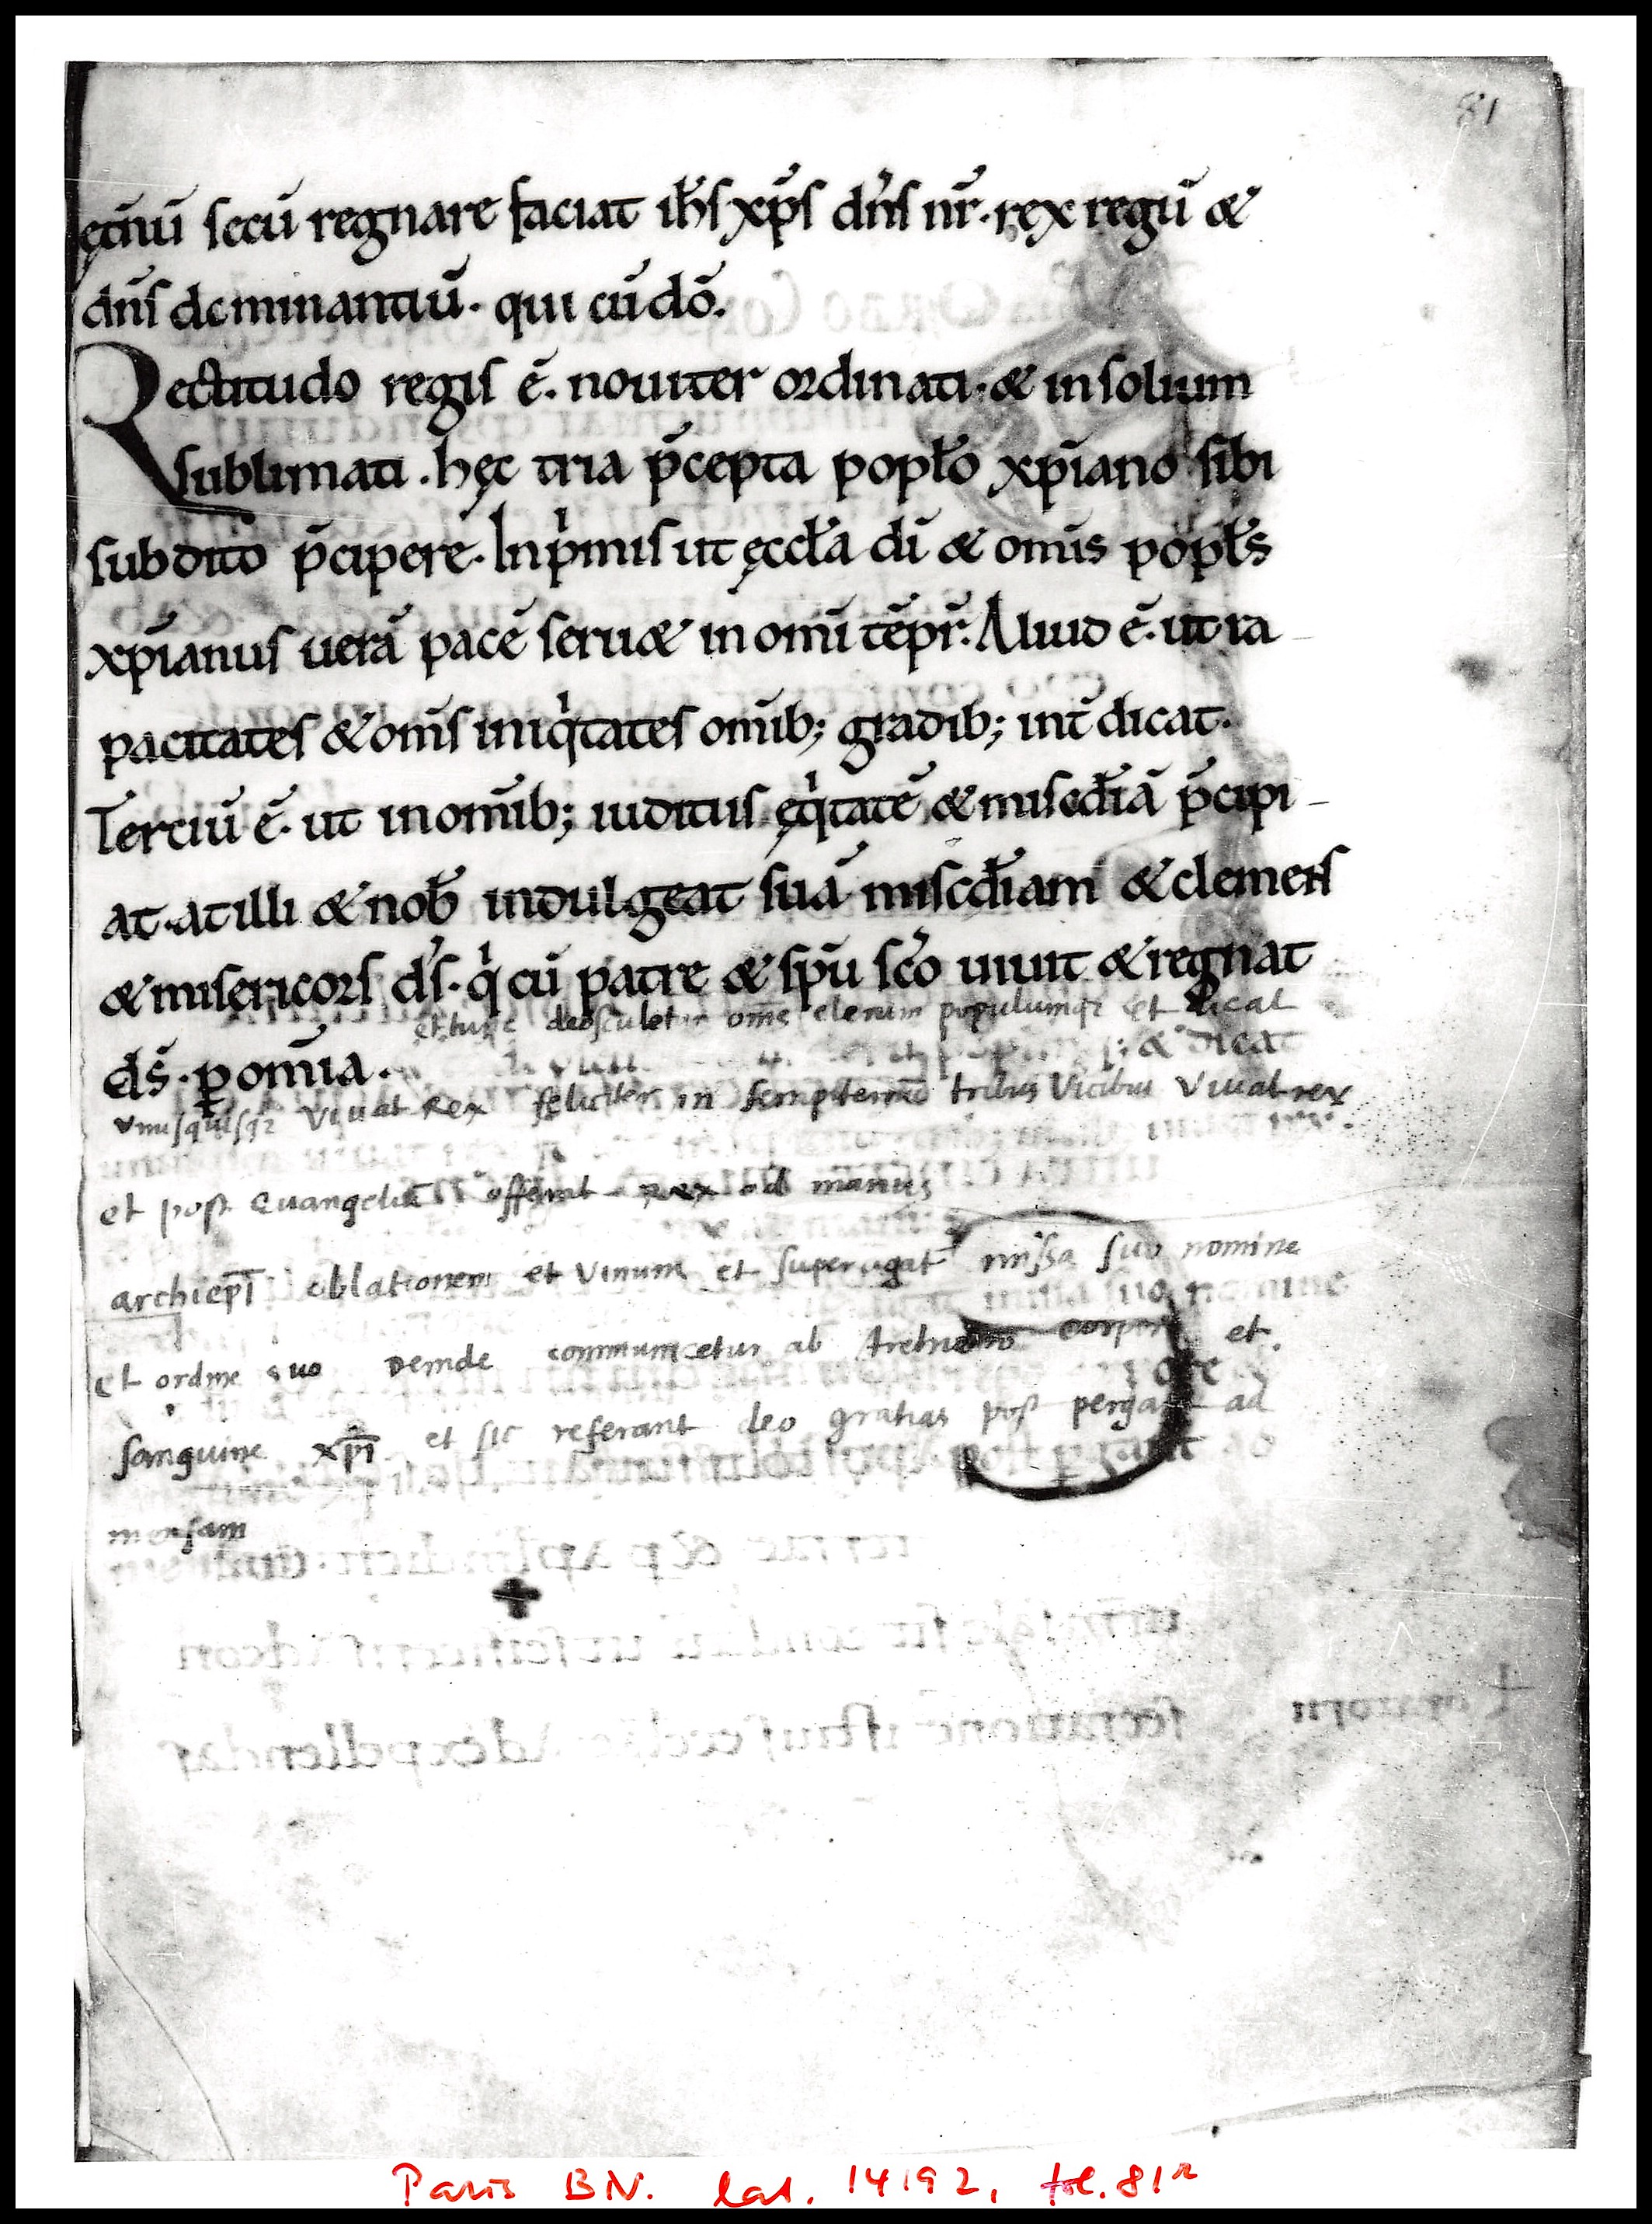 81
ęt̄nū secū regnare faciat ih̄s xp̄s dn̄s nr̄. rex regū &
dn̄s dominantiū. qui cū dō.
Rectitudo regis ē. nouiter ordinati. & in solium
sublimati. hęc tria p̄cepta popło xp̄iano sibi
subdito p̄cipere. Inp̍mis ut ęccła dī & om̄is popłs
xp̄ianus uerā pacē seru& in om̄i tēpr̄. Aliud ē. ut ra
pacitates & om̄s iniq̍tates om̄ib; gradib; int̄dicat.
Terciū ē. ut in om̄ib; iuditiis ęq̍tatē & misc̄diā p̄cipi
at. at illi & nob̄ indulgeat suā misc̄diam & clemens
& misericors ds̄. q̍ cū patre & sp̄u sc̄o uiuit & regnat
ds̄. ꝑ om̄ia.
et tunc deosculetur om̄s clerum populumqꝫ et dicat
& dicat
vnusquisqꝫ Viuat Rex feliciter in sempiternū tribus Vicibus Viuat rex
et post Euangeliū offerat rex ad manus
archiep̄i oblationem et Vinum et superagat̄ missa suo nomine
et ordine suo Deinde communicetur ab corpore et
sanguine xp̄i et sic referant deo gratias post pergant ad
mensam
Paris BN. lat. 14192, fol. 81r